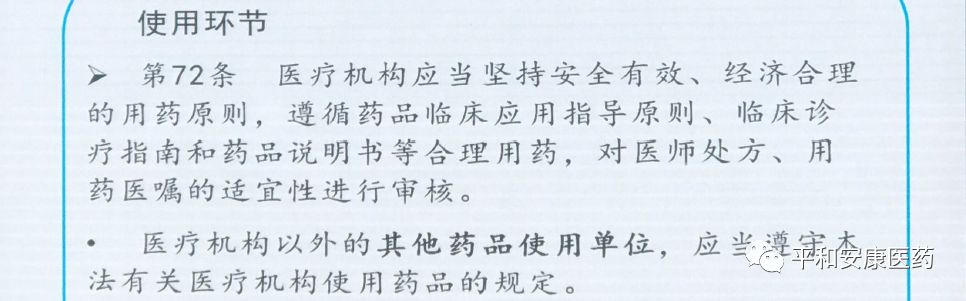 使用环节
➢ 第72条 医疗机构应当坚持安全有效、经济合理
的用药原则，遵循药品临床应用指导原则、临床诊
疗指南和药品说明书等合理用药，对医师处方、用
药医嘱的适宜性进行审核。
• 医疗机构以外的其他药品使用单位，应当遵守本
法有关医疗机构使用药品的规定。
平和安康医药